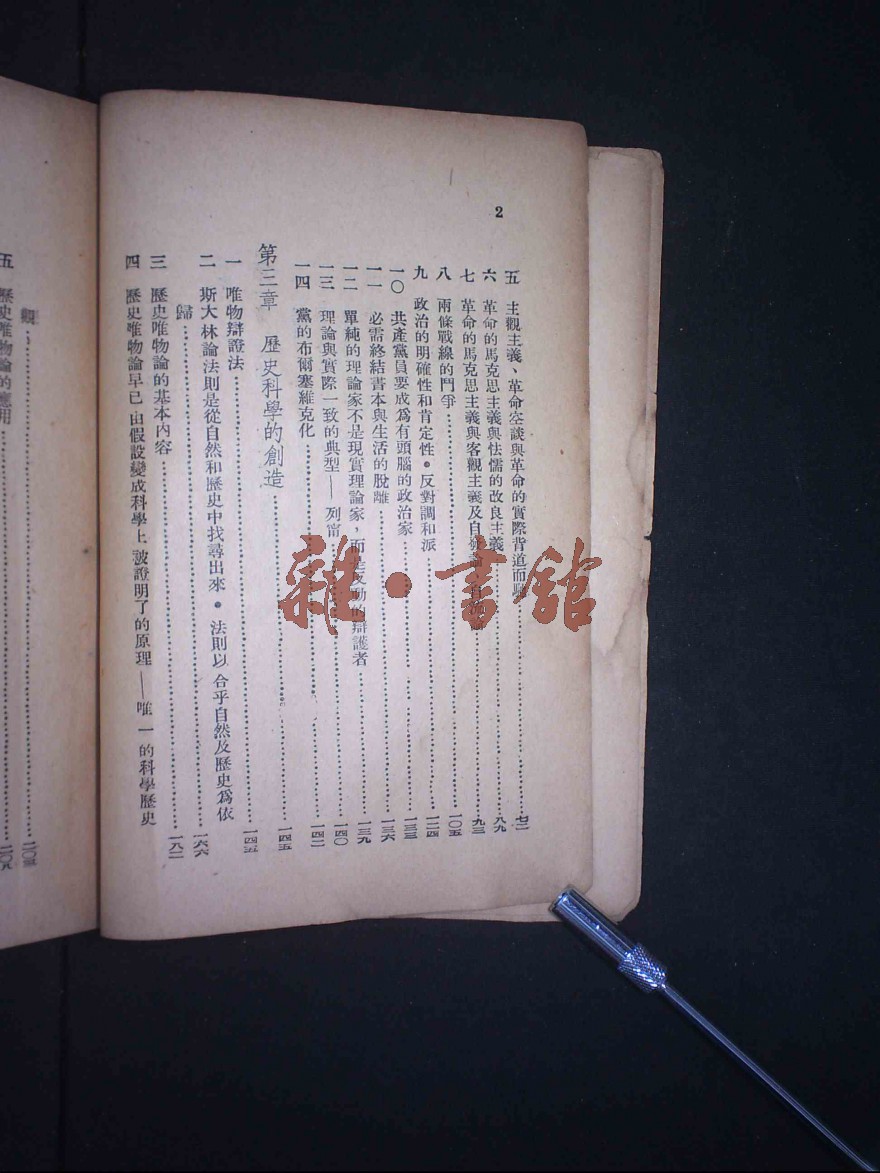 2
五　主觀主義、革命空談與革命的實際背道而馳……七二
六　革命的馬克思主義與怯懦的改良主義……八九
七　革命的馬克思主義與客觀主義及自……九三
八　兩條戰線的鬥爭……一〇五
九　政治的明確性和肯定性。反對調和派……一二四
一〇　共產黨員要成為有頭腦的政治家……一三三
一一　必需終結書本與生活的脫離……一三六
一二　單純的理論家不是現實理論家，而是反動的辯護者……一三九
一三　理論與實際一致的典型——列甯……一四〇
一四　黨的布爾塞維克化……一四二
第三章　歷史科學的創造……一四五
一　唯物辯證法……一四五
二　斯大林論法則是從自然和歷史中找尋出來。法則以合乎自然及歷史爲依
歸……一六六
三　歷史唯物論的基本內容……一八二
四　歷史唯物論早已由假設變成科學上被證明了的原理——唯一的科學歷史
觀……二〇三
五　歷史唯物論的應用……二〇九
雜·書館